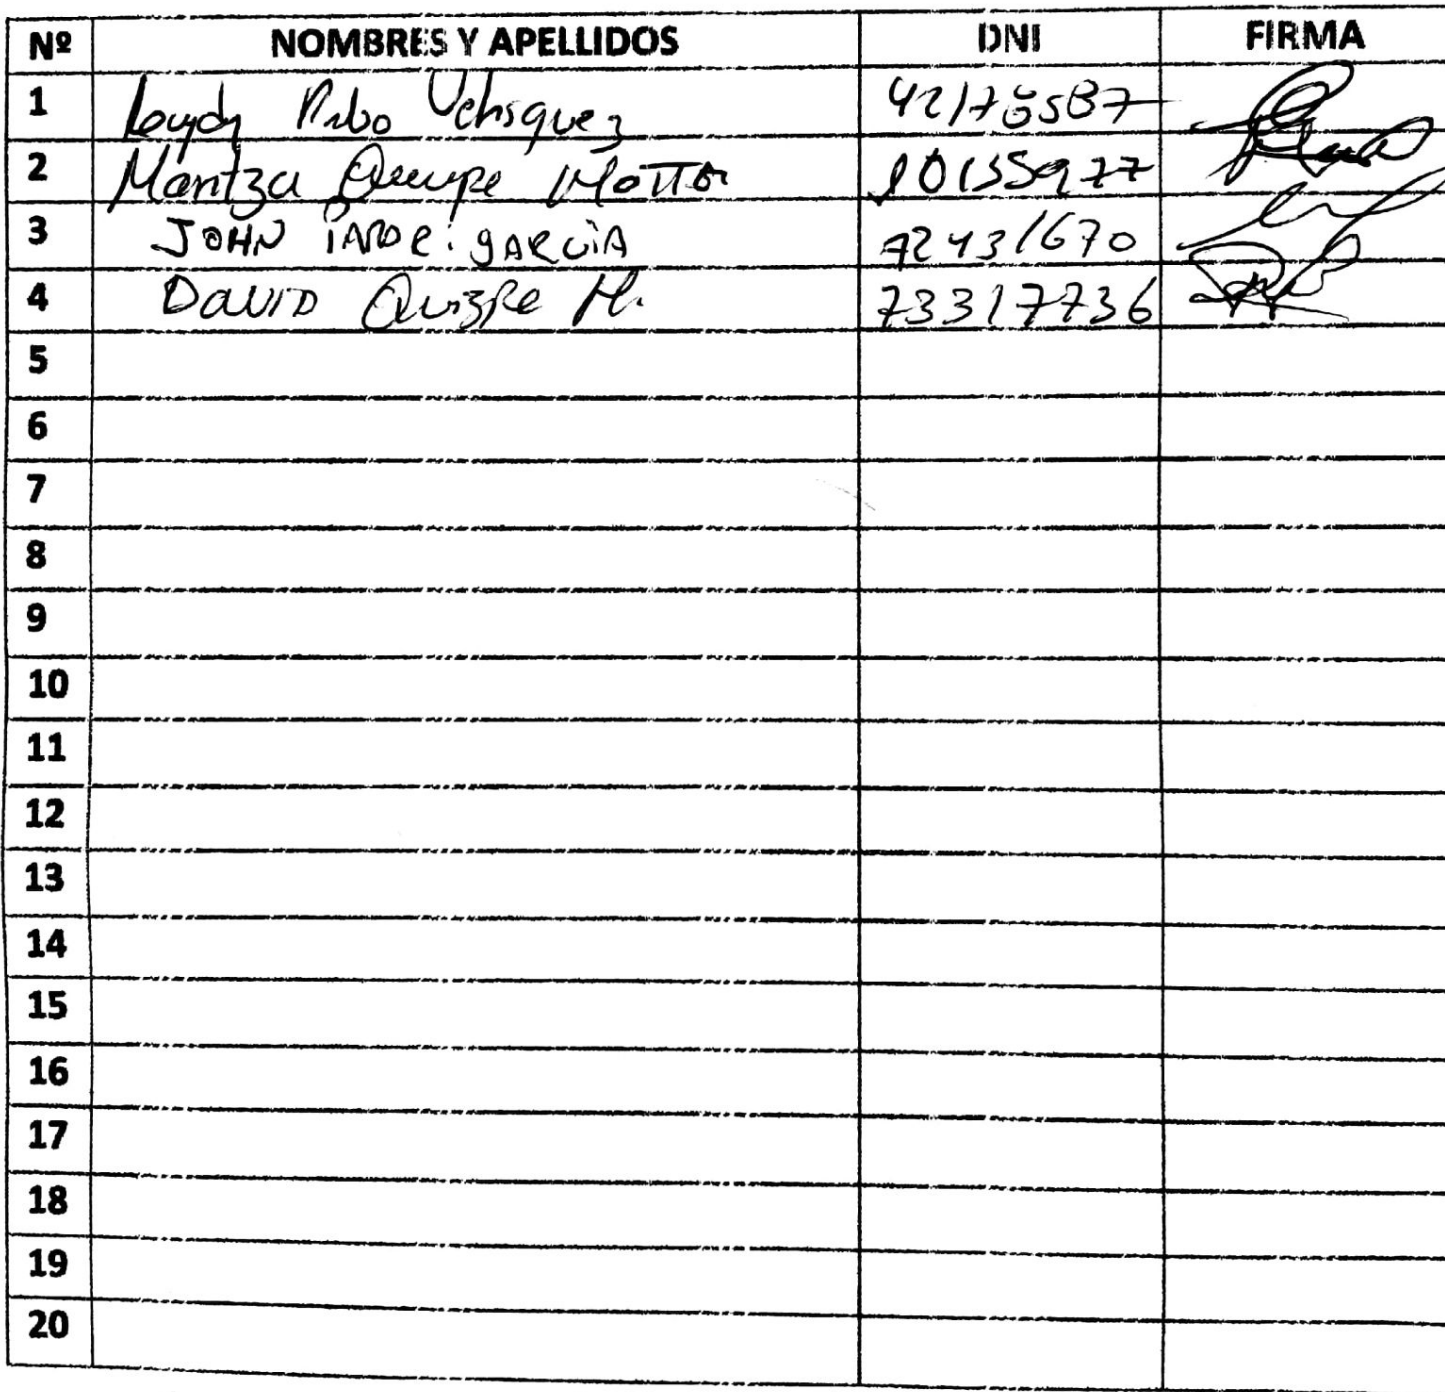 Nº NOMBRES Y APELLIDOS DNI FIRMA
1 Velasquez
2 Maritza Quispe 10155977
3 JOHN GARCIA 72431670
4 DAVID Quispe M. 73317736
5
6
7
8
9
10
11
12
13
14
15
16
17
18
19
20